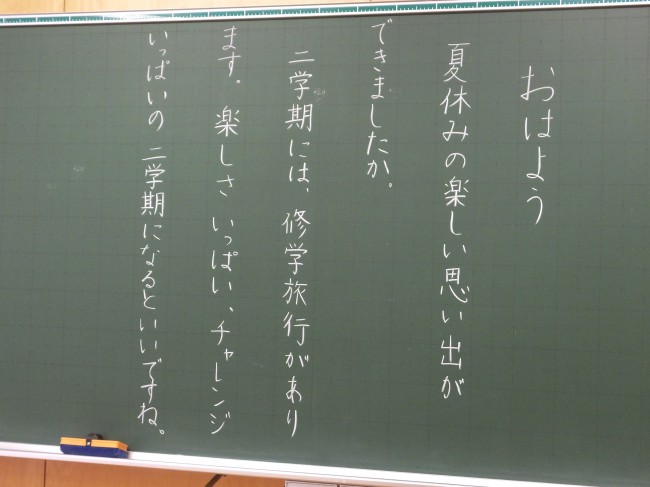 おはよう
夏休みの楽しい思い出が
できましたか。
二学期には、修学旅行があり
ます。楽しさいっぱい、チャレンジ
いっぱいの二学期になるといいですね。